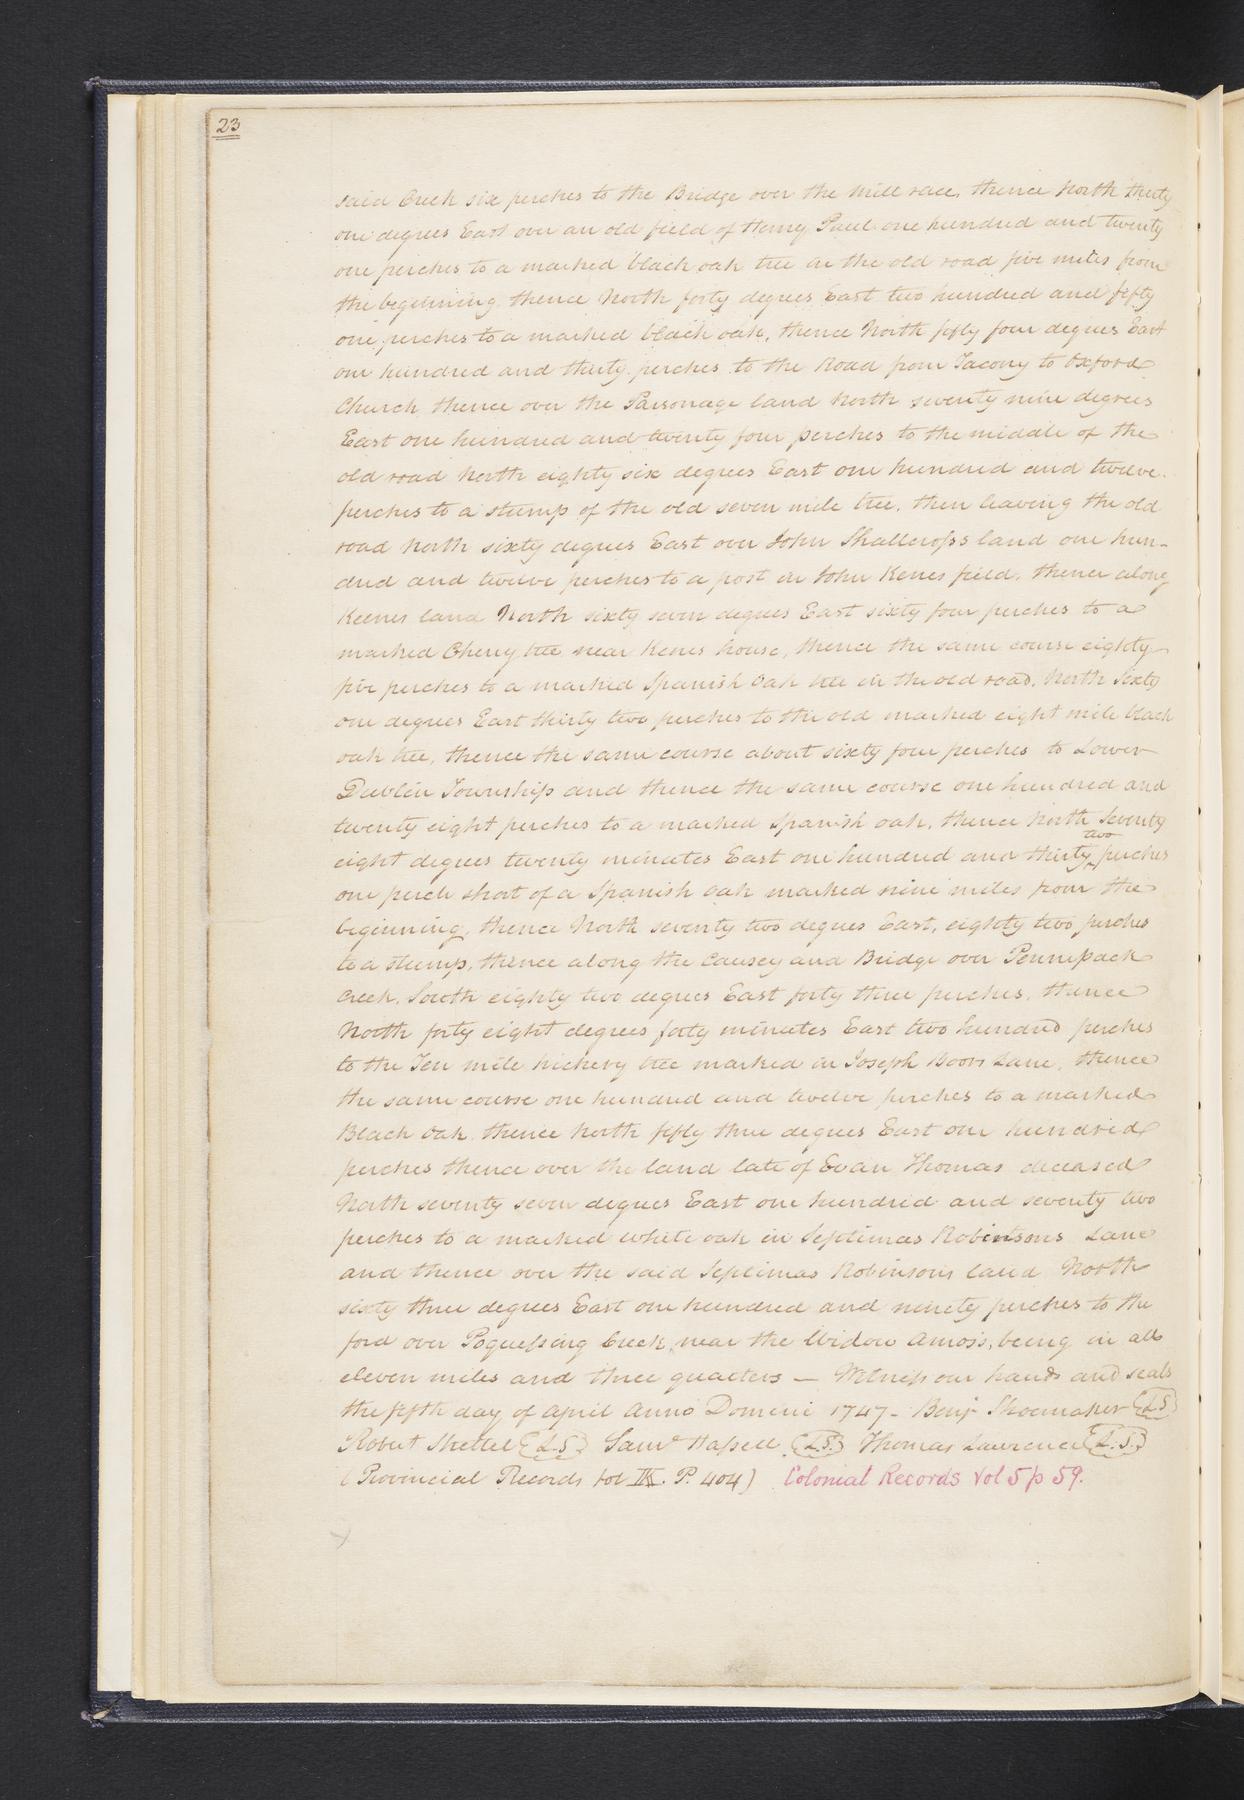 23
said Creek six perches to the Bridge over the Mill race, thence North thirty
one degrees East over an old field of Henry Paul one hundred and twenty
one perches to a marked black oak tree in the old road five miles from
the beginning, thence North forty degrees East two hundred and fifty
one perches to a marked black oak, thence North fifty four degrees East
one hundred and thirty perches to the Road from Tacony to Oxford
Church thence over the Parsonage land North seventy nine degrees
East one hundred and twenty four perches to the middle of the
old road North eighty six degrees East one hundred and twelve
perches to a stump of the old seven mile tree, then leaving the old
road North sixty degrees East over John Shallcross land one hun-
dred and twelve perches to a post in John Kenes field, thence along
Keenes land North sixty seven degrees East sixty four perches to a
marked Cherry tree near Kenes house, thence the same course eighty
five perches to a marked Spanish Oak tree in the old road, North Sixty
one degrees East thirty two perches to the old marked eight mile black
oak tree, thence the same course about sixty four perches to Lower
Dublin Township and thence the same course one hundred and
twenty eight perches to a marked Spanish oak, thence North Seventy
eight degrees twenty minutes East one hundred and thirty two perches
one perch short of a Spanish Oak marked nine miles from the
beginning, thence North seventy two degrees East, eighty two perches
to a stump, thence along the Causey and Bridge over Pennepack
Creek, South eighty two degrees East forty three perches, thence
North forty eight degrees forty minutes East two hundred perches
to the Ten mile hickery tree marked in Joseph Boors Lane, thence
the same course one hundred and twelve perches to a marked
Black Oak thence North fifty three degrees East one hundred
perches thence over the land late of Evan Thomas deceased
North seventy seven degrees East one hundred and seventy two
perches to a marked white oak in Septimas Robinsons Lane
and thence over the said Septimas Robinsons land North
sixty three degrees East one hundred and ninety perches to the
ford over Poquessing Creek, near the Widow Amos's, being in all
eleven miles and three quarters — Witness our hands and seals
the fifth day of April Anno Domini 1747 - Benj Shoemaker (L.S)
Robert Shettel (L.S.) Saml Hasell (L.S.) Thomas Lawrence (L.S.)
(Provincial Records vol IK. P. 404) Colonial Records Vol 5 p 59.